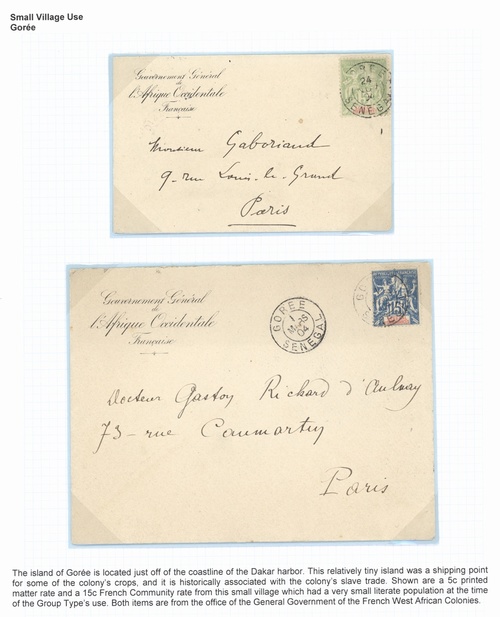 Small Village Use
Gorée
Gouvernement Général
de
l'Afrique Occidentale
Française
GOREE
24
04
SENEGAL
Monsieur Gaboriaud
9 - rue Louis-le-Grand
Paris
Gouvernement Général
de
l'Afrique Occidentale
Française
GOREE
1
MARS
04
SENEGAL
15
Docteur Gaston Richard d'Aulnay
73 - rue Caumartin
Paris
The island of Gorée is located just off of the coastline of the Dakar harbor. This relatively tiny island was a shipping point
for some of the colony's crops, and it is historically associated with the colony's slave trade. Shown are a 5c printed
matter rate and a 15c French Community rate from this small village which had a very small literate population at the time
of the Group Type's use. Both items are from the office of the General Government of the French West African Colonies.